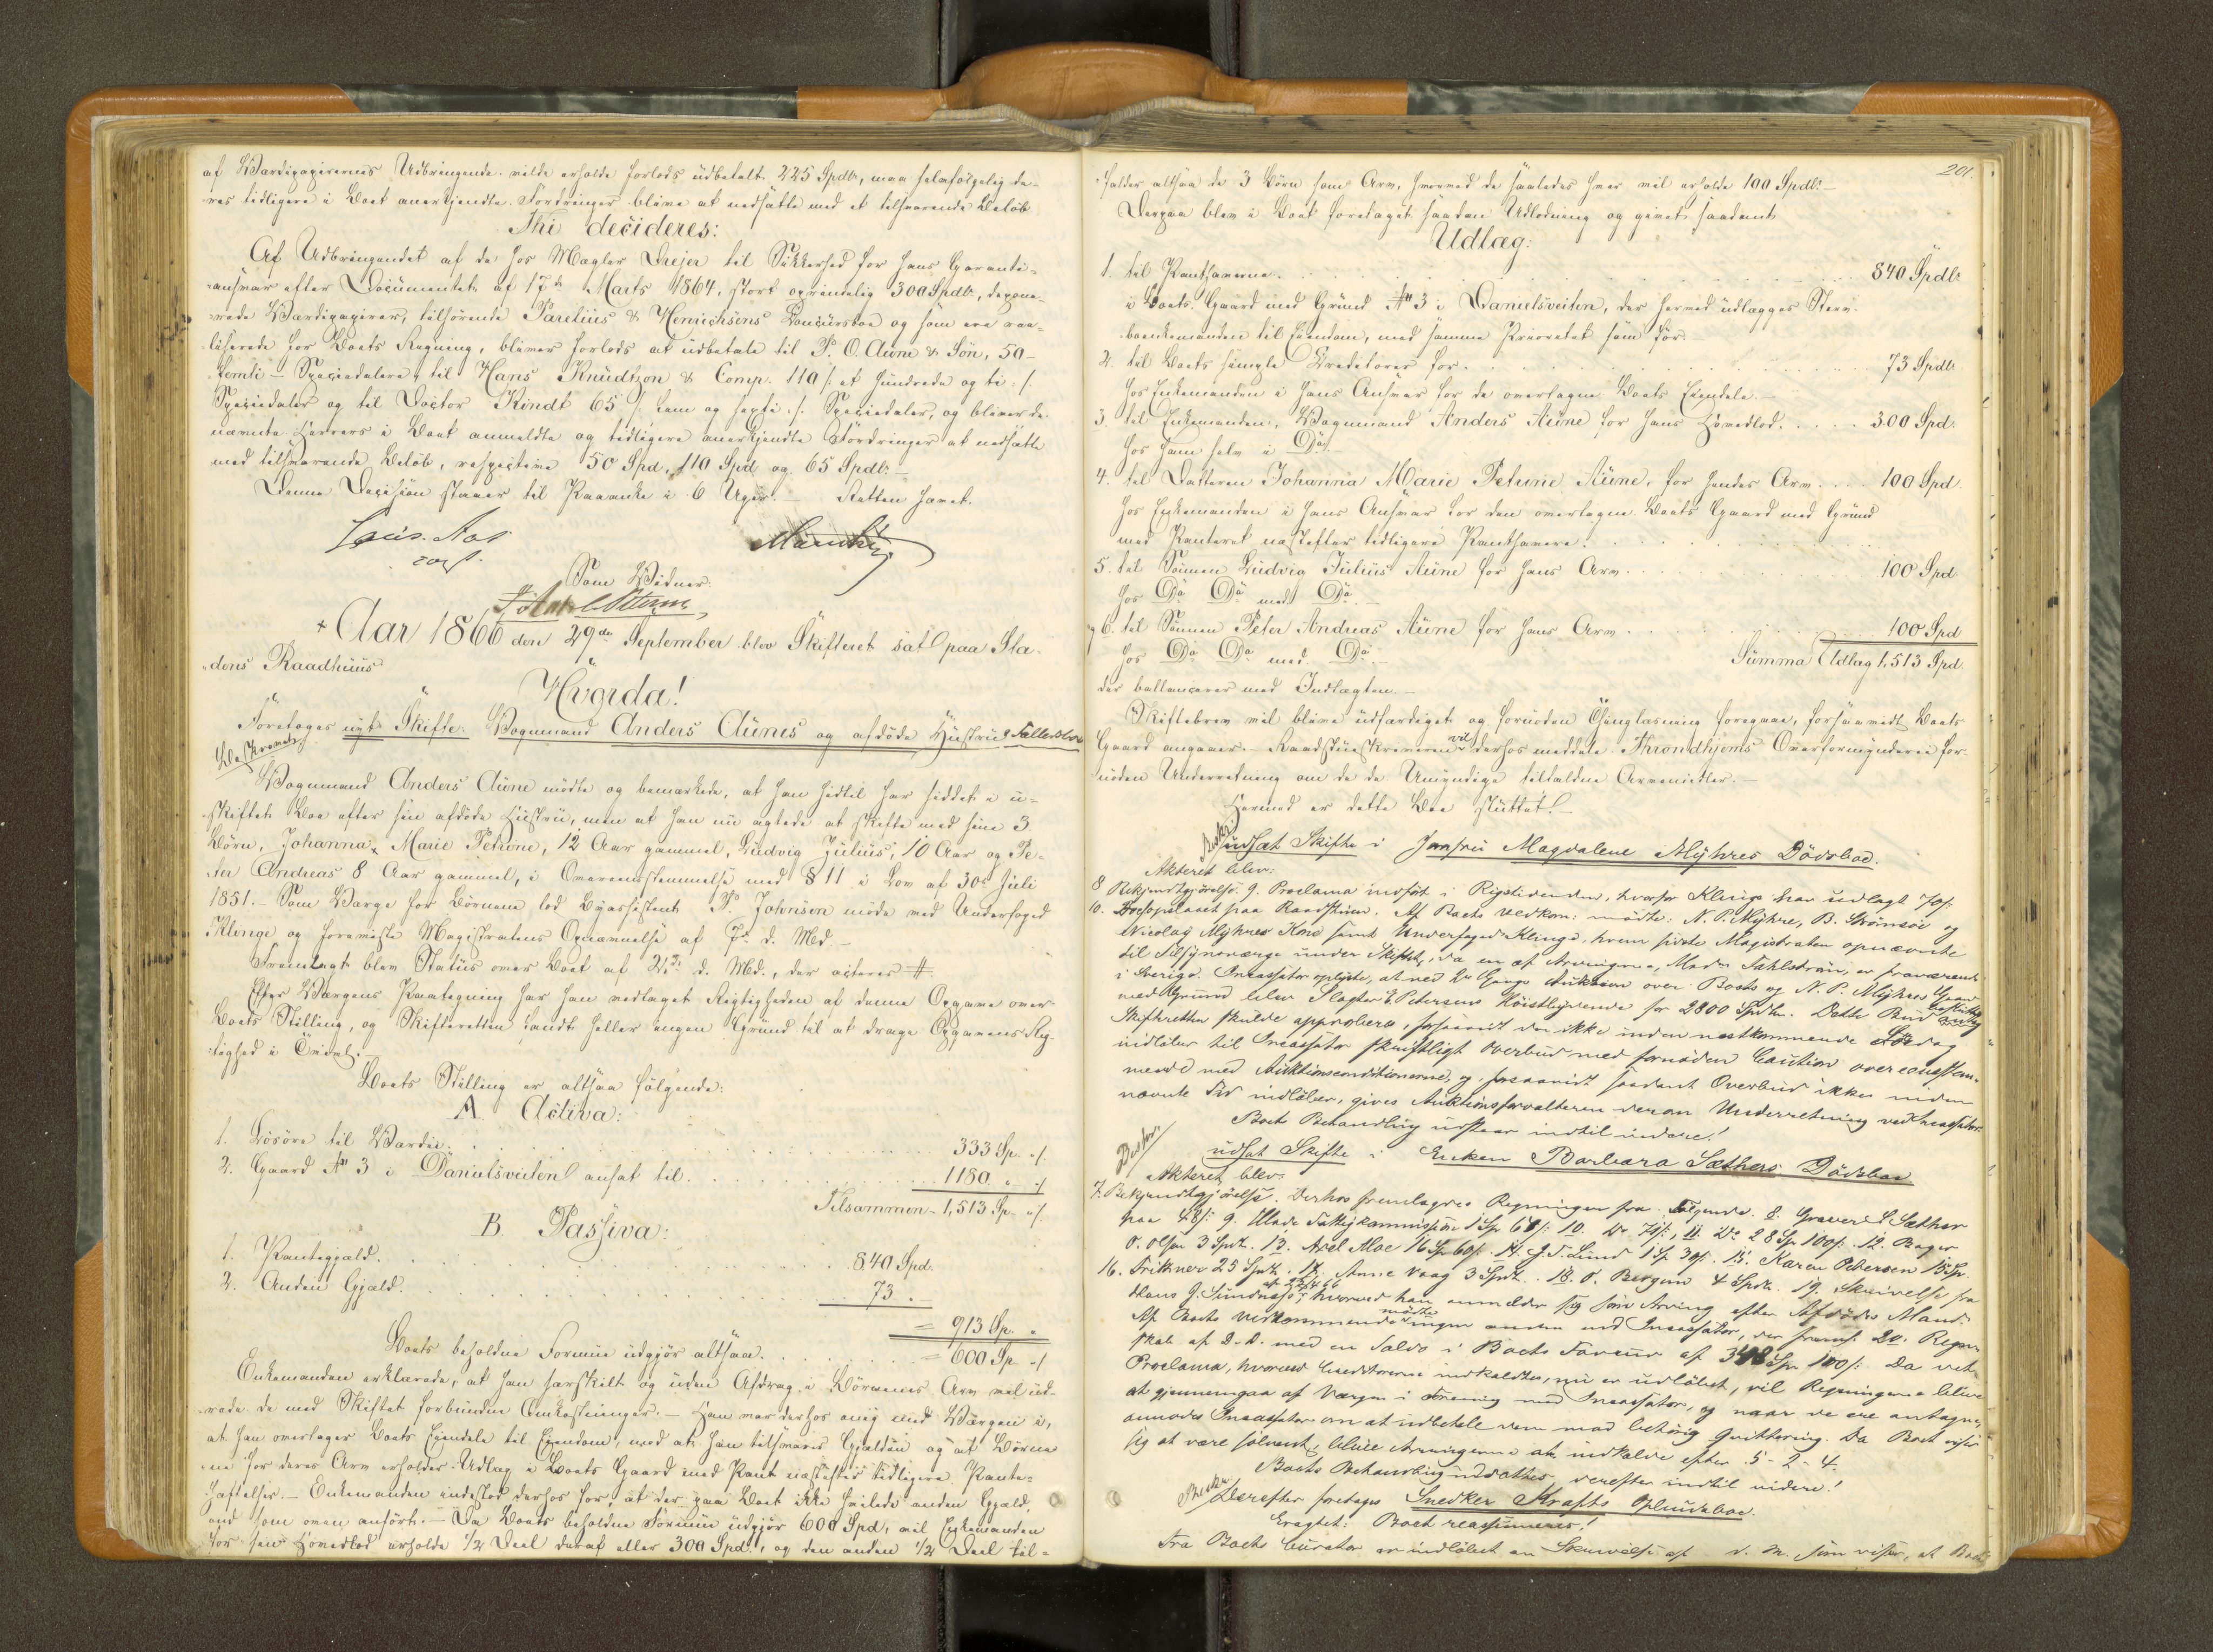 af Værdipapirernes Udbringende vilde erholde forlods udbetalt 225 Spdlr, maa selvfølgelig de-
res tidligere i Boet anerkjendte Fordringer blive at nedsætte med et tilsvarende Beløb
Thi decideres:
Af Udbringendet af de hos Mægler Drejer til Sikkerhed for hans Garanti-
ansvar efter Documentet af 17de Marts 1864, stort oprindelig 300 Spdlr, depone-
rede Værdipapirer, tilhørende Parelius & Henrichsens Concursboe og som ere rea-
liserede for Boets Regning, bliver forlods at udbetale til P. O. Aune & Søn, 50 -
femti - Speciedalere, til Hans Knudtzon & Comp. 110 /: et Hundrede og ti :/
Speciedaler og til Doctor Kindt 65 /: fem og sexti :/ Speciedaler, og bliver de
nævnte Herrers i Boet anmeldte og tidligere anerkjendte Fordringer at nedsætte
med tilsvarende Beløb, respective 50 Spd, 110 Spd og 65 Spdlr. -
Denne Decision staaer til Paaanke i 6 Uger. - Retten hævet.
Som Vidner:
+ Aar 1866 den 29de September blev Skifteret sat paa Sta-
dens Raadhuus
Hvorda!
Foretoges nyt Skifte: Vognmand Anders Aunes og afdøde Hustrues Fællesboe
Beskrevet
Vognmand Anders Aune mødte og bemærkede, at han hidtil har siddet i u-
skiftet Boe efter sin afdøde Hustru, men at han nu agtede at skifte med sine 3
Børn, Johanna Marie Petrine, 12 Aar gammel, Ludvig Julius, 10 Aar og Pe-
ter Andreas 8 Aar gammel, i Overeensstemmelse med § 11 i Lov af 30te Juli
1851. - Som Værge for Børnene lod Byassistent P. Johnsen møde ved Underfoged
Klinge og foreviste Magistratens Opnævnelse af 7de d. Md. -
Fremlagt blev Status over Boet af 21de d. Md., der acteres #.
Efter Værgens Paategning har han vedtaget Rigtigheden af denne Opgave over
Boets Stilling, og Skifteretten fandt heller ingen Grund til at drage Opgavens Rig-
tighed i Tvivl. -
Boets Stilling er altsaa følgende:
A. Activa:
1. Løsøre til Værdie. 333 Sp. "/
2. Gaard No 3 i Danielsveiten ansat til. 1180 " "/
Tilsammen - 1,513 Sp. "/.
B. Passiva:
1. Pantegjæld. 840 Spd.
2. Anden Gjæld. 73 "
= 913 Sp. "
Boets beholdne Formue udgjør altsaa. = 600 Sp "/
Enkemanden erklærede, at han særskilt og uden Afdrag i Børnenes Arv vil ud-
rede de med Skiftet forbundne Omkostninger. - Han var derhos enig med Værgen i,
at han overtager Boets Eiendele til Eiendom, mod at han tilsvarer Gjælden og at Børne-
ne for deres Arv erholder Udlæg i Boets Gaard med Pant næstefter tidligere Pante-
heftelser. - Enkemanden indestod derhos for, at der paa Boet ikke hvilede anden Gjæld,
end som oven anført. - Da Boets beholdne Formue udgjør 600 Spd, vil Enkemanden
for sin Hovedlod erholde 1/2 Deel deraf eller 300 Spd., og den anden 1/2 Deel til-
201.
falder altsaa de 3 Børn som Arv, hvorved de saaledes hver vil erholde 100 Spdlr. -
Derpaa blev i Boet foretaget saadan Udlodning og givet saadant
Udlæg:
1. til Panthaverne. 840 Spdlr
i Boets Gaard med Grund No 3 i Danielsveiten, der herved udlægges Sterv-
boenkemanden til Eiendom, med samme Prioritet som før. -
2. til Boets simple Creditorer for. 73 Spdlr
hos Enkemanden i hans Ansvar for de overtagne Boets Eiendele. -
3. til Enkemanden, Vognmand Anders Aune for hans Hovedlod. 300 Spd.
hos ham selv i Do. -
4. til Datteren Johanna Marie Petrine Aune, for hendes Arv. 100 Spd.
hos Enkemanden i hans Ansvar for den overtagne Boets Gaard med Grund
med Panteret næstefter tidligere Panthavere.
5. til Sønnen Ludvig Julius Aune for hans Arv. 100 Spd
hos Do Do med Do. -
og 6. til Sønnen Peter Andreas Aune for hans Arv. 100 Spd
hos Do Do med Do. -
Summa Udlæg 1,513 Spd.
der ballancerer med Indtægten. -
Skiftebrev vil blive udfærdiget og fornøden Thinglæsning foregaae, forsaavidt Boets
Gaard angaaer. - Raadstueskriveren vil derhos meddele Throndhjems Overformynderie for-
nøden Underretning om de de Umyndige tilfaldne Arvemidler. -
Hermed er dette Boe sluttet! -
Beskr.
udsat Skifte i Jomfru Magdalene Myhres Dødsboe.
Akteret blev:
8 Bekjendtgjørelse. 9. Proclama indført i Rigstidenden, hvorfor Klinge har udlagt 70 s:
10. Do opslaaet paa Raadstuen. Af Boets Vedkom: mødte: N. P. Myhre, B. Strømsøe og
Nicolay Myhres Kone samt Underfoged Klinge, hvem sidste Magistraten opnævnte
til Tilsynsværge under Skiftet, da en af Arvingerne, Mad. Dahlstrøm, er fraværende
i Sverige. Incassator oplyste, at ved 2den Gangs Auktion over Boets og N. P. Myhres Gaard
med Grund blev Slagter E Petersens Høistbydende for 2800 Spdlr. Dette Bud
Skifteretten skulde approbere, forsaavidt der ikke inden næstkommende Lørdag
indløber til Incassator skriftligt Overbud med fornøden Caution overeensstem-
mende med Auktionsconditionerne, og forsaavidt saadant Overbud ikke inden
nævnte Tid indløber, gives Auktionsforvalteren derom Underretning ved Incassator.
Boets Behandling udstaar indtil videre!
Beskr.
udsat Skifte i Enken Barbara Sæthers Dødsboe
Akteret blev:
7. Bekjendtgjørelse. Derhos fremlagdes Regninger fra Følgende. 8. Graver L Sæther
paa 48 s: 9. Hlade Fattigkommission 1 Sp 68 s: 10. Do 74 s:, 11. Do 28 Sp 100 s. 12. Bager
O. Olsen 3 Spdr. 13. Axel Moe 16 Sp 60 s. 14. J. F. Lund 1 Sp. 30 s. 15. Karen Petersen 15 Sp.
16. Frikner 25 Spdr. 17. Anne Vaag 3 Spdr. 18. O. Bergum 4 Spdr. 19. Skrivelse fra
Hans J. Sundnæs, hvorved han anmelder sig som Arving efter Afdødes Mand.
Af Boets Vedkommende mødte ingen anden end Incassator, der freml. 20. Regn-
skab af D. D. med en Saldo i Boets Faveur af 348 Sp 100 s. Da det
Proclama, hvorved Creditorerne indkaldtes, nu er udløbet, vil Regningerne blive
at gjennemgaa af Værgen i Forening med Incassator, og naar de ere antagne,
anmodes Incassator om at udbetale dem mod behørig Qvittering. Da Boet viser
sig at være solvent, blive Arvingerne at indkalde efter 5 - 2 - 4.
Boets Behandling udsættes derefter indtil videre!
Derefter foretoges Snedker Krafts Opbudsboe.
Eragtet: Boet reassumeres!
Fra Boets Curator er indløbet en Skrivelse af d. M. som viser, at Boets